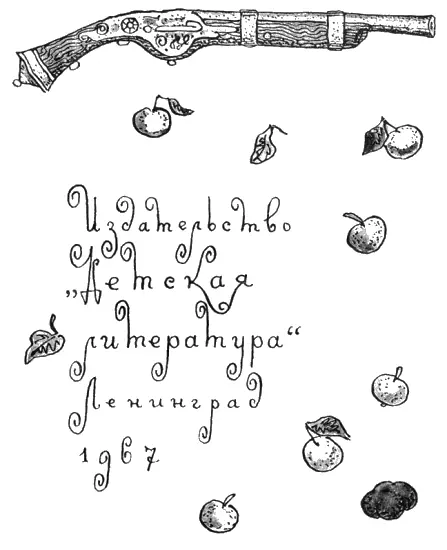 Издательство
„Детская
литература“
Ленинград
1967